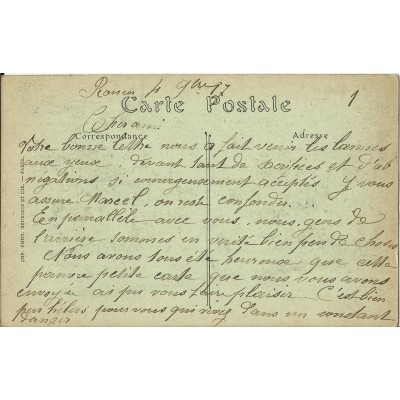 Rouen 4 9bre 17
1
Carte Postale
Cher ami
Correspondance
Adresse
Votre bonne lettre nous a fait venir les larmes
aux yeux. devant tant de sacrifices et d'ab
négations si courageusement acceptés Je vous
assure Marcel, on reste confondu.
En parallèle avec vous, nous, gens de
l'arrière sommes en vérité bien peu de choses
Nous avons tous été heureux que cette
pauvre petite carte que nous vous avons
envoyée ai pu vous faire plaisir. C'est bien
peu hélas pour vous qui vivez dans un constant
danger
IMP. PHOT. NEURDEIN ET CIE. — PARIS